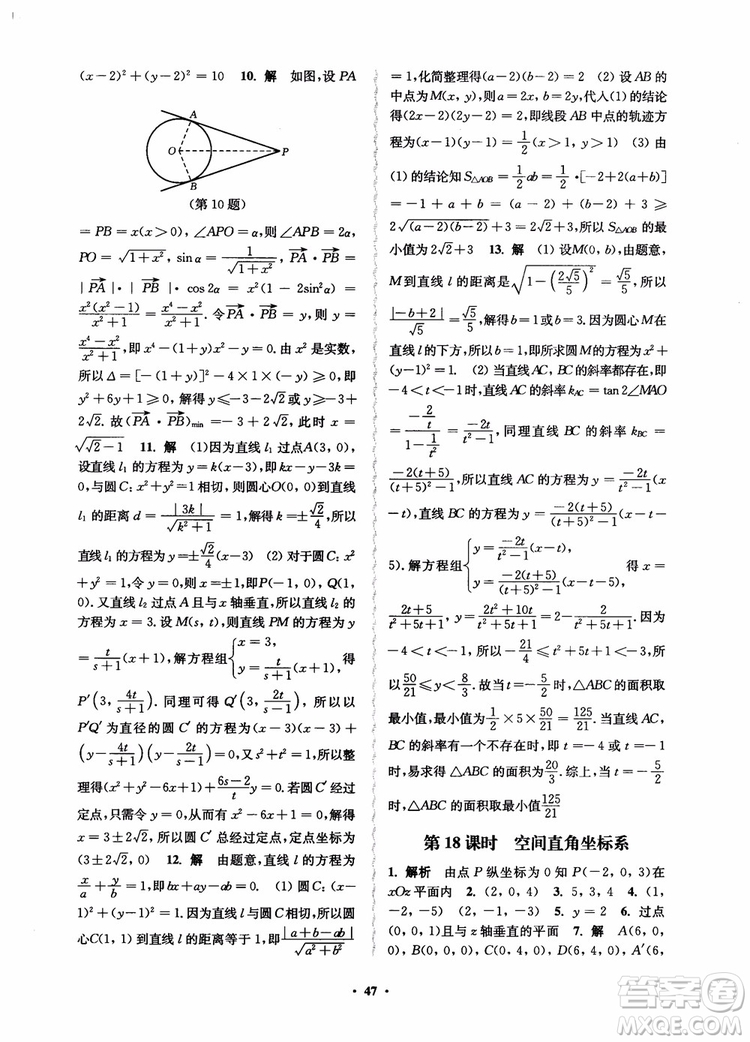 (x-2)²+(y-2)²=10　10. 解　如图,设 PA
A
O
P
B
(第 10 题)
=PB=x(x>0), ∠APO=α, ∠APB=2α,
PO=√(1+x²), sinα=1/√(1+x²), PA→·PB→=
|PA→|·|PB→|·cos2α=x²(1-2sin²α)=
x²(x²-1)/(x²+1)=(x⁴-x²)/(x²+1). 令PA→·PB→=y,则 y=
(x⁴-x²)/(x²+1),即 x⁴-(1+y)x²-y=0. 因为 x² 是实数,
所以 Δ=[-(1+y)]²-4×1×(-y)≥0,即
y²+6y+1≥0,解得 y≤-3-2√2 或 y≥-3+
2√2. 故(PA→·PB→)min=-3+2√2,此时 x=
√(√2-1)　11. 解　(1)因为直线 l₁ 过点A(3,0),
设直线 l₁ 的方程为 y=k(x-3),即 kx-y-3k=0. 直线 l₁
与圆 C:x²+y²=1 相切,则圆心O(0,0)到直线
l₁ 的距离 d=|3k|/√(k²+1)=1,解得 k=±√2/4,所以
直线 l₁ 的方程为 y=±√2/4(x-3)　(2)对于圆 C:x²
+y²=1,令 y=0,则 x=±1,即P(-1,0),Q(1,
0). 又直线 l₂ 过点 A 且与 x 轴垂直,所以直线 l₂ 的
方程为 x=3. 设 M(s,t),则直线 PM 的方程为 y=
t/(s+1)(x+1),解方程组{x=3, y=t/(s+1)(x+1), 得
P′(3,4t/(s+1)). 同理可得 Q′(3,2t/(s-1)),所以以
P′Q′为直径的圆 C′的方程为(x-3)(x-3)+
(y-4t/(s+1))(y-2t/(s-1))=0. 又 s²+t²=1,所以整
理得(x²+y²-6x+1)+(6s-2)/t y=0. 若圆 C′经过
定点,只需令 y=0,从而有 x²-6x+1=0,解得 x=
3±2√2,所以圆 C′总经过定点,定点坐标为
(3±2√2,0)　12. 解　由题意,可设直线 l 的方程为
x/a+y/b=1,即 bx+ay-ab=0. (1)因为圆 C:(x-
1)²+(y-1)²=1,所以圆 C 的半径为 1. 由题意,圆
心C(1,1)到直线 l 的距离等于 1,即|a+b-ab|/√(a²+b²)
=1,化简整理得(a-2)(b-2)=2　(2)设 AB 的
中点为M(x,y),则a=2x,b=2y,代入(1)的结论
得(2x-2)(2y-2)=2,即线段 AB 中点的轨迹方
程为(x-1)(y-1)=1/2(x>1,y>1)　(3)由
(1)的结论知 S△AOB=1/2ab=1/2·[
=-1+a+b=(a-2)+(b-2)+3≥
2√((a-2)(b-2))+3=2√2+3,所以 S△AOB的最
小值为 2√2+3　13. 解　(1)设M(0,b),由题意,
M到直线 l 的距离是√(1-(2√5/5)²)=√5/5,所以
|-b+2|/√5=√5/5,解得 b=1 或 b=3. 因为圆心 M在
直线 l 的下方,所以 b=1,即所求圆 M 的方程为 x²+
(y-1)²=1.　(2)当直线 AC,BC 的斜率都存在,即
-4<t<-1 时,直线 AC 的斜率 kAC=tan2∠MAO
=(-2/t)/(1-1/t²)=-2t/(t²-1),同理直线 BC 的斜率 kBC=
-2(t+5)/((t+5)²-1),所以直线 AC 的方程为 y=-2t/(t²-1)(x
-t),直线 BC 的方程为 y=-2(t+5)/((t+5)²-1)(x-t-
5). 解方程组{y=-2t/(t²-1)(x-t), y=-2(t+5)/((t+5)²-1)(x-t-5), 得 x=
(2t+5)/(t²+5t+1),y=(2t²+10t)/(t²+5t+1)=2-2/(t²+5t+1). 因为
-4<t<-1,所以-21/4≤t²+5t+1<-3,所
以50/21≤y<8/3. 故当 t=-5/2时,△ABC 的面积取
最小值,最小值为1/2×5×50/21=125/21. 当直线 AC,
BC 的斜率有一个不存在时,即 t=-4或 t=-1
时,易求得△ABC 的面积为20/3. 综上,当 t=-5/2
时,△ABC 的面积取最小值125/21
第 18 课时　空间直角坐标系
1. 解析　由点 P 纵坐标为 0 知 P(-2,0,3)在
xOz 平面内　2. (2,0,4)　3. 5,3,4　4. (1,
-2,-5)　(2,-2,0)　5. y=2　6. 过点
(0,0,1)且与 z 轴垂直的平面　7. 解　A(6,0,
0),B(6,4,0),C(0,4,0),O(0,0,0),A′(6,
· 47 ·
答案圈